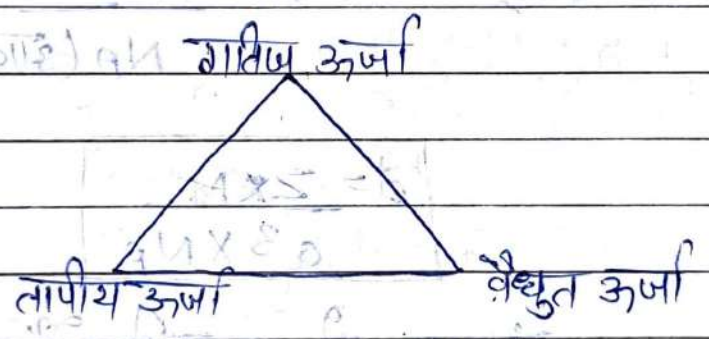 गतिज ऊर्जा
तापीय ऊर्जा
वैधुत ऊर्जा